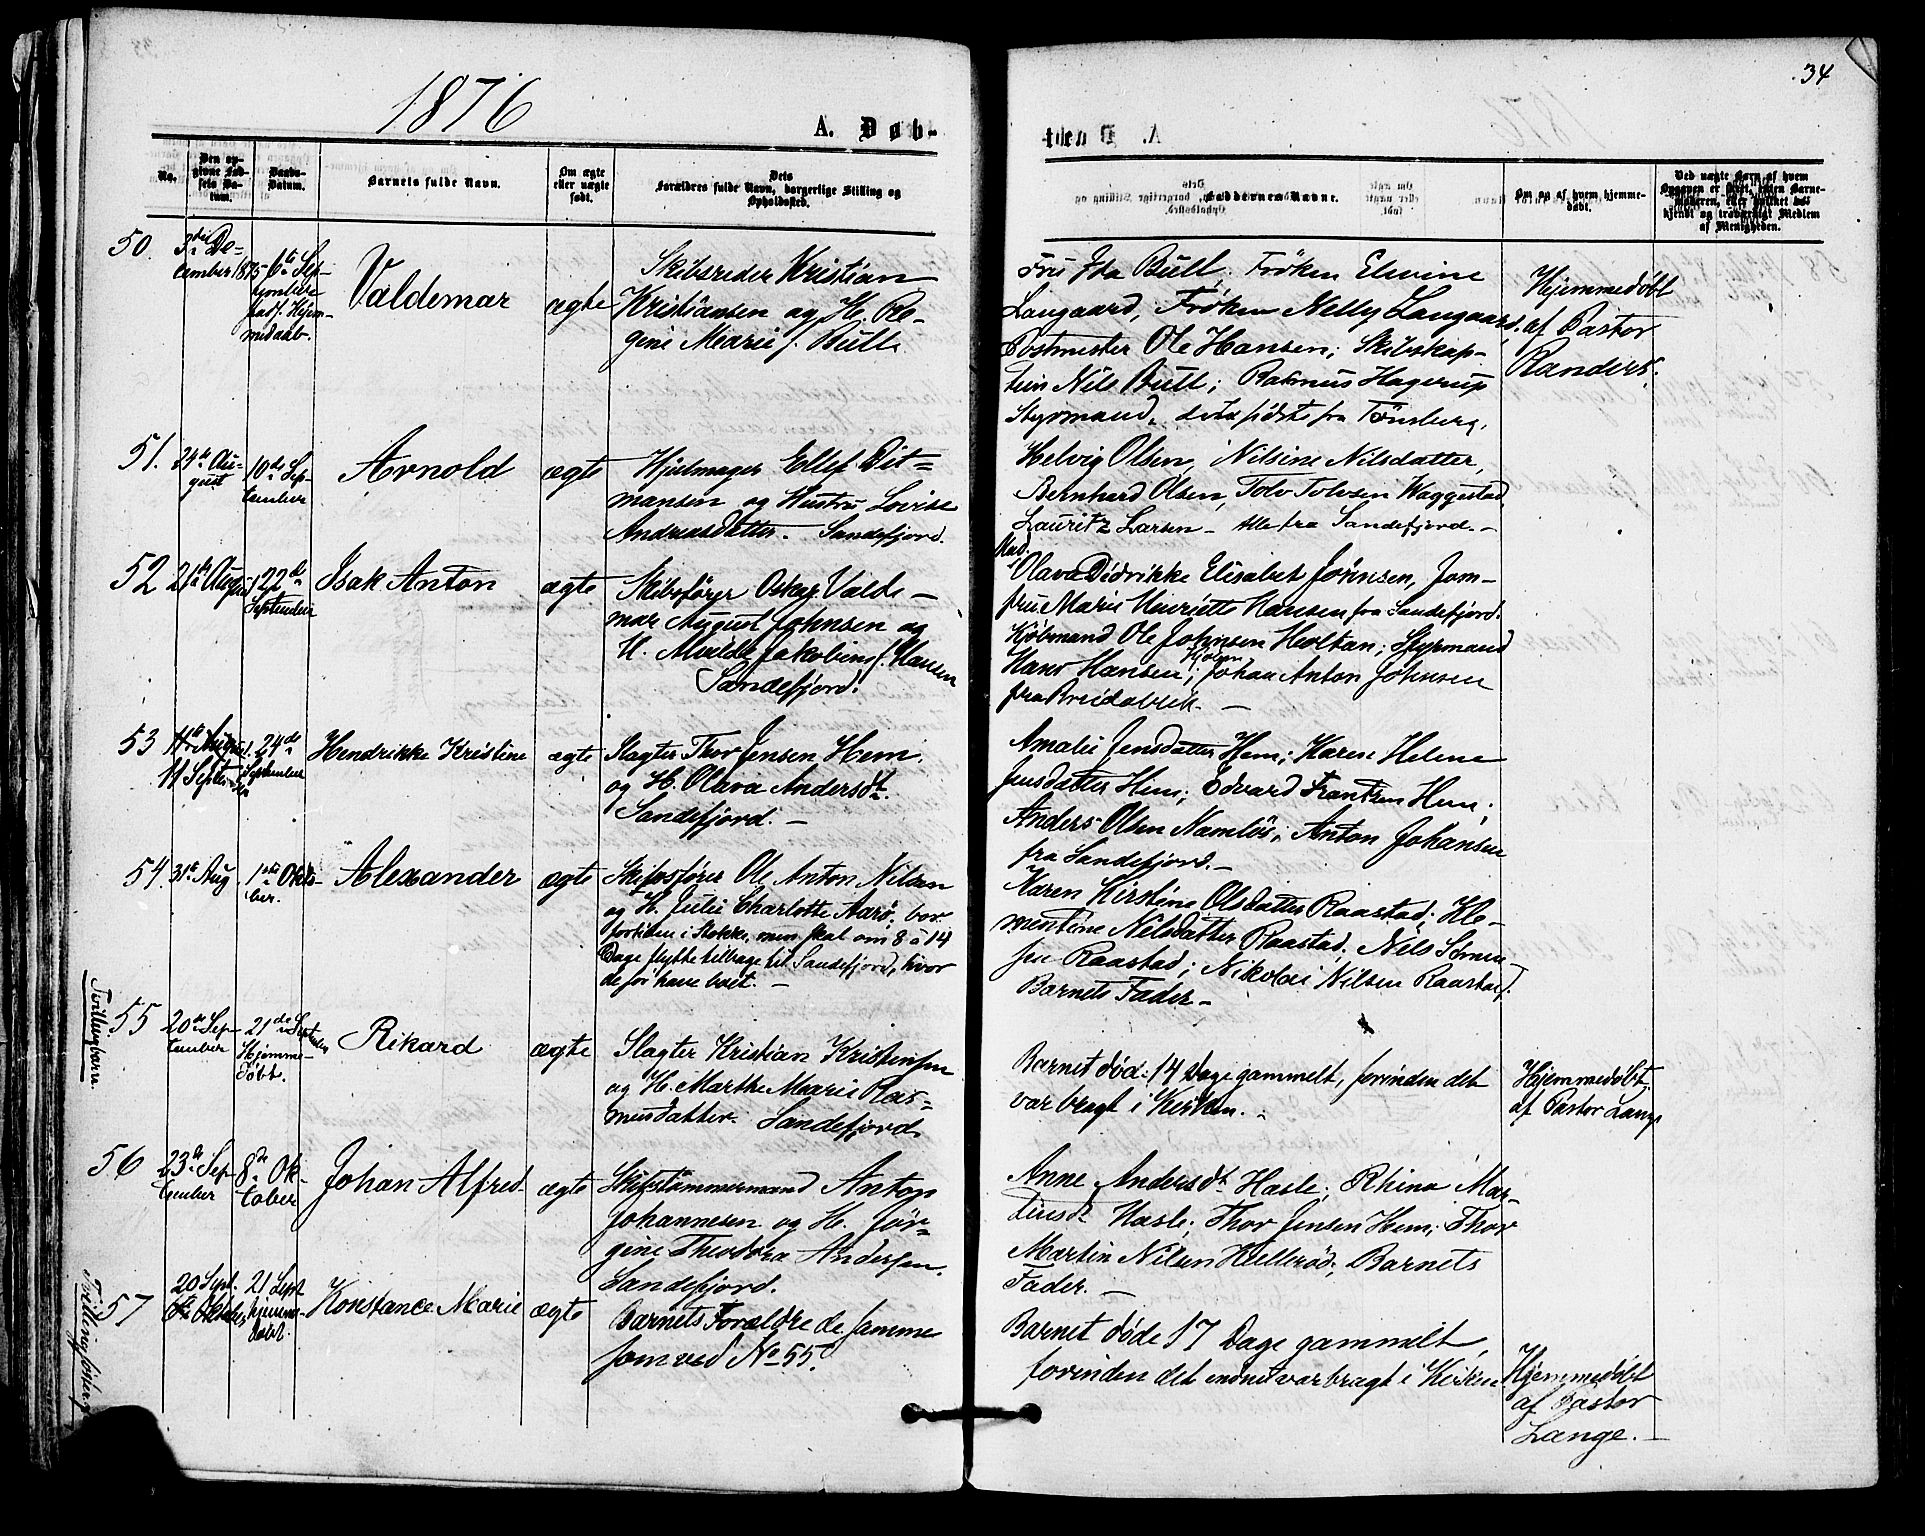 1876
A. Døb-
34
No.
Den op-
givne Fød-
sels Da-
tum.
Daabs-
Datum.
Barnets fulde Navn.
Om ægte
eller uægte
født.
Dets
Forældres fulde Navn, borgerlige Stilling og
Opholdssted.
Faddernes Navne.
Om og af hvem hjemme-
døbt.
Ved uægte Børn af hvem
Opgaven er skeet, enten Barne-
moderen, eller hvilket be-
kjendt og troværdigt Medlem
af Menigheden.
50.
3die De-
cember 1875
6te Sep-
tember
stadf. Hjem-
medaab.
Valdemar
ægte
Skibsreder Kristian
Kristiansen og H. Re-
gine Marie f. Bull.
Fru Ida Bull; Frøken Elwine
Langaard, Frøken Nelly Langaard,
Postmester Ole Hansen; Skibskap-
tein Nils Bull; Rasmus Hagerup
Styrmand, de to sidste fra Tønsberg.
Hjemmedøbt
af Pastor
Randers.
51.
24de Au-
gust
10de Sep-
tember
Arnold
ægte
Hjulmager Ellef Dit-
mansen og Hustru Lovise
Andreasdatter. Sandefjord.
Helvig Olsen, Nilsine Nilsdatter,
Bernhard Olsen, Tolv Tolvsen Waggestad,
Lauritz Larsen - alle fra Sandefjord. -
52
21de August
22de
September
Isak Anton
ægte
Skibsfører Oskar Valde-
mar August Johnsen og
H. Mathilde Jakobine f. Hansen
Sandefjord.
Mad.
Olava Didrikke Elisabet Johnsen, Jom-
fru Marie Henriette Hansen fra Sandefjord.
Kjøbmand Ole Johnsen Holtan; Styrmand
Hans Hansen; Johan Anton Johnsen
fra Breidablik. -
53
11 Septem-
ber
24de
September
Hendrikke Kristine
ægte
Slagter Thor Jensen Hem
og H. Olava Andersdt.
Sandefjord. -
Amalie Jensdatter Hem; Karen Helene
Jensdatter Hem; Edvard Frantzen Hem;
Anders Olsen Namløs; Anton Johansen
fra Sandefjord. -
54.
31te Aug
1ste Okto-
ber.
Alexander
ægte
Skibsfører Ole Anton Nilsen
og H. Julie Charlotte Aarø. bor
fortiden i Stokke, men skal om 8 à 14
Dage flytte tilbage til Sandefjord, hvor
de før have boet. -
Karen Kirstine Olsdatter Raastad; Kle-
mentine Nilsdatter Raastad; Nils Sören-
sen Raastad; Nikolai Nilsen Raastad;
Barnets Fader -
Tvillingbarn.
55
20de Sep-
tember
21de September
Hjemme-
døbt.
Rikard
ægte
Slagter Kristian Kristensen
og H. Marthe Marie Ras-
musdatter. Sandefjord.
Barnet død: 14 Dage gammelt, forinden det
var bragt i Kirken. -
Hjemmedøbt
af Pastor Lange
56
23de Sep-
tember
8de Ok-
tober
Johan Alfred
ægte
Skibstømmermand Anton
Johannesen og H. Jør-
gine Theodora Andersen.
Sandefjord.
Anne Andersdt. Hasle; Rhina Mar-
tinsdt. Hasle; Thor Jensen Hem; Thor
Martin Nilsen Hellerød; Barnets
Fader. -
57
20 Sept.
21 Sept
hjemme-
døbt.
Konstance Marie
ægte
Barnets Forældre de samme
som ved No 55.
Barnet døde 17 Dage gammelt,
forinden det endnu var bragt i Kirken
Hjemmedøbt
af Pastor
Lange. -